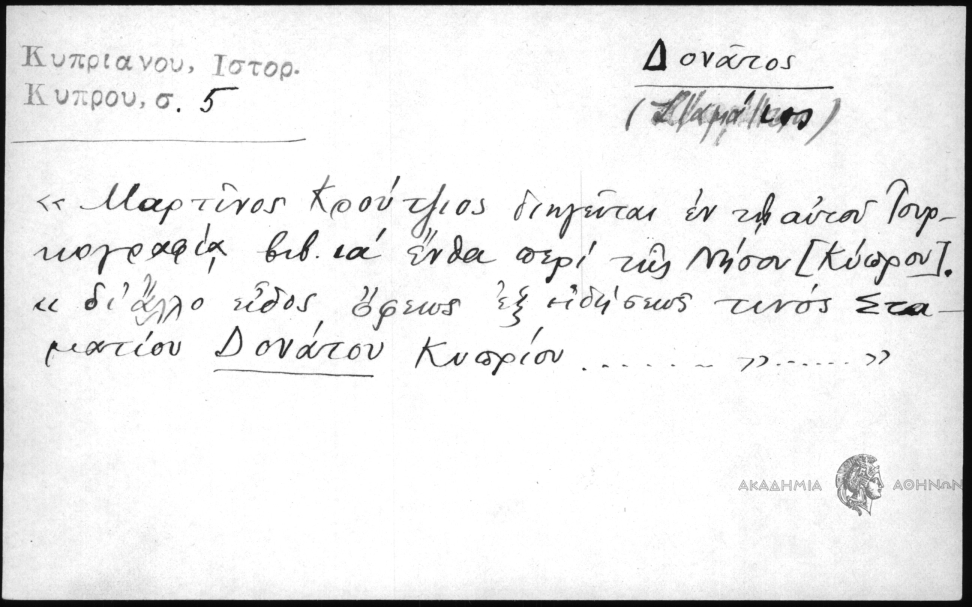 Κυπριανου, Ιστορ.
Κυπρου, σ. 5
Δονᾶτος
« Μαρτῖνος Κρούτζιος διηγεῖται ἐν τῇ αὐτοῦ Τουρ-
κογραφίᾳ βιβ. ιά ἔνθα περί τῆς Νήσου [Κύπρου].
« δι' ἄλλο εἶδος ὄφεως ἐξ εἰδήσεως τινός Στα-
ματίου Δονάτου Κυπρίου ....... » ...... »
ΑΚΑΔΗΜΙΑ ΑΘΗΝΩΝ